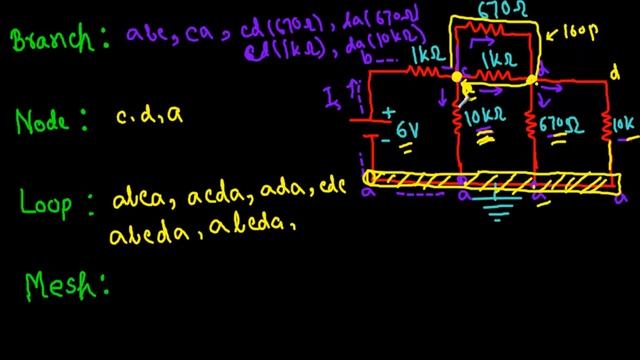 Branch: abc, ca, cd(670Ω), da(670Ω)
cd(1kΩ), da(10kΩ)
Node: c, d, a
Loop: abca, acda, ada, cdc
abcda, abcda,
Mesh:
670Ω
loop
b
1kΩ
c
1kΩ
d
d
I
+
-
6V
10kΩ
670Ω
10k
a
a
a
a